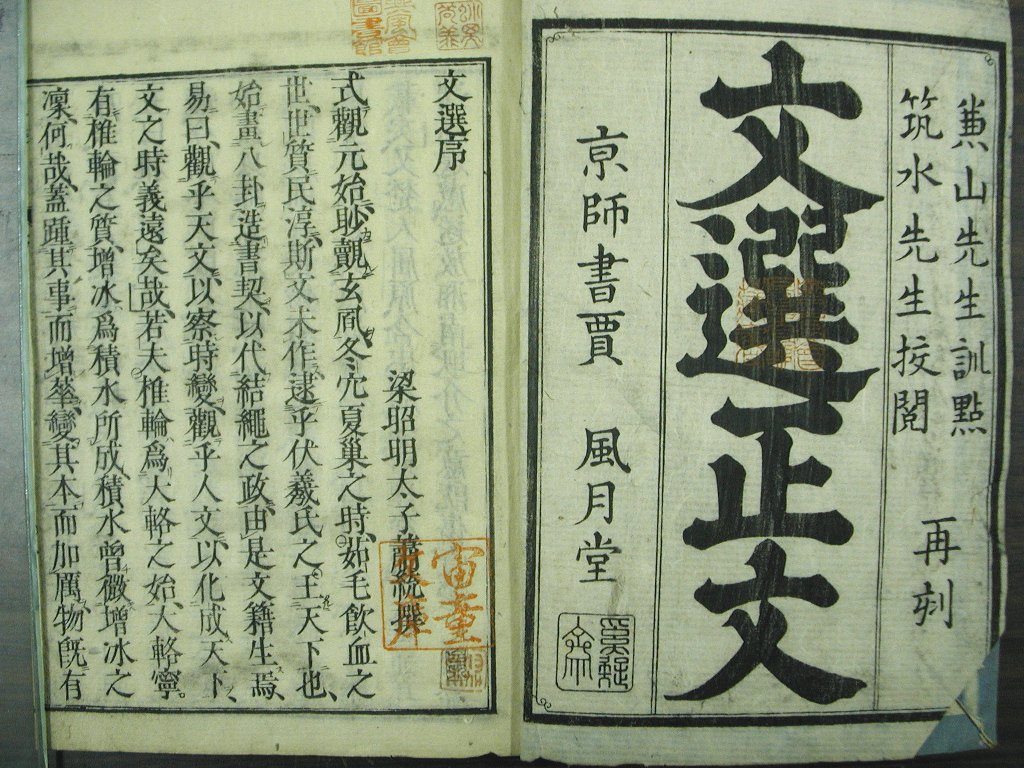 兼山先生訓點
筑水先生挍閲 再刻
文選正文
亰師書賈 風月堂
文選序
梁昭明太子蕭統撰
式觀元始眇覿玄風冬穴夏巢之時茹毛飲血之
世世質民淳斯文未作逮乎伏羲氏之王天下也
始畫八卦造書契以代結繩之政由是文籍生焉
易曰觀乎天文以察時變觀乎人文以化成天下
文之時義遠矣哉若夫椎輪爲大輅之始大輅寧
有椎輪之質增冰爲積水所成積水曾微增冰之
凜何哉蓋踵其事而增華變其本而加厲物旣有